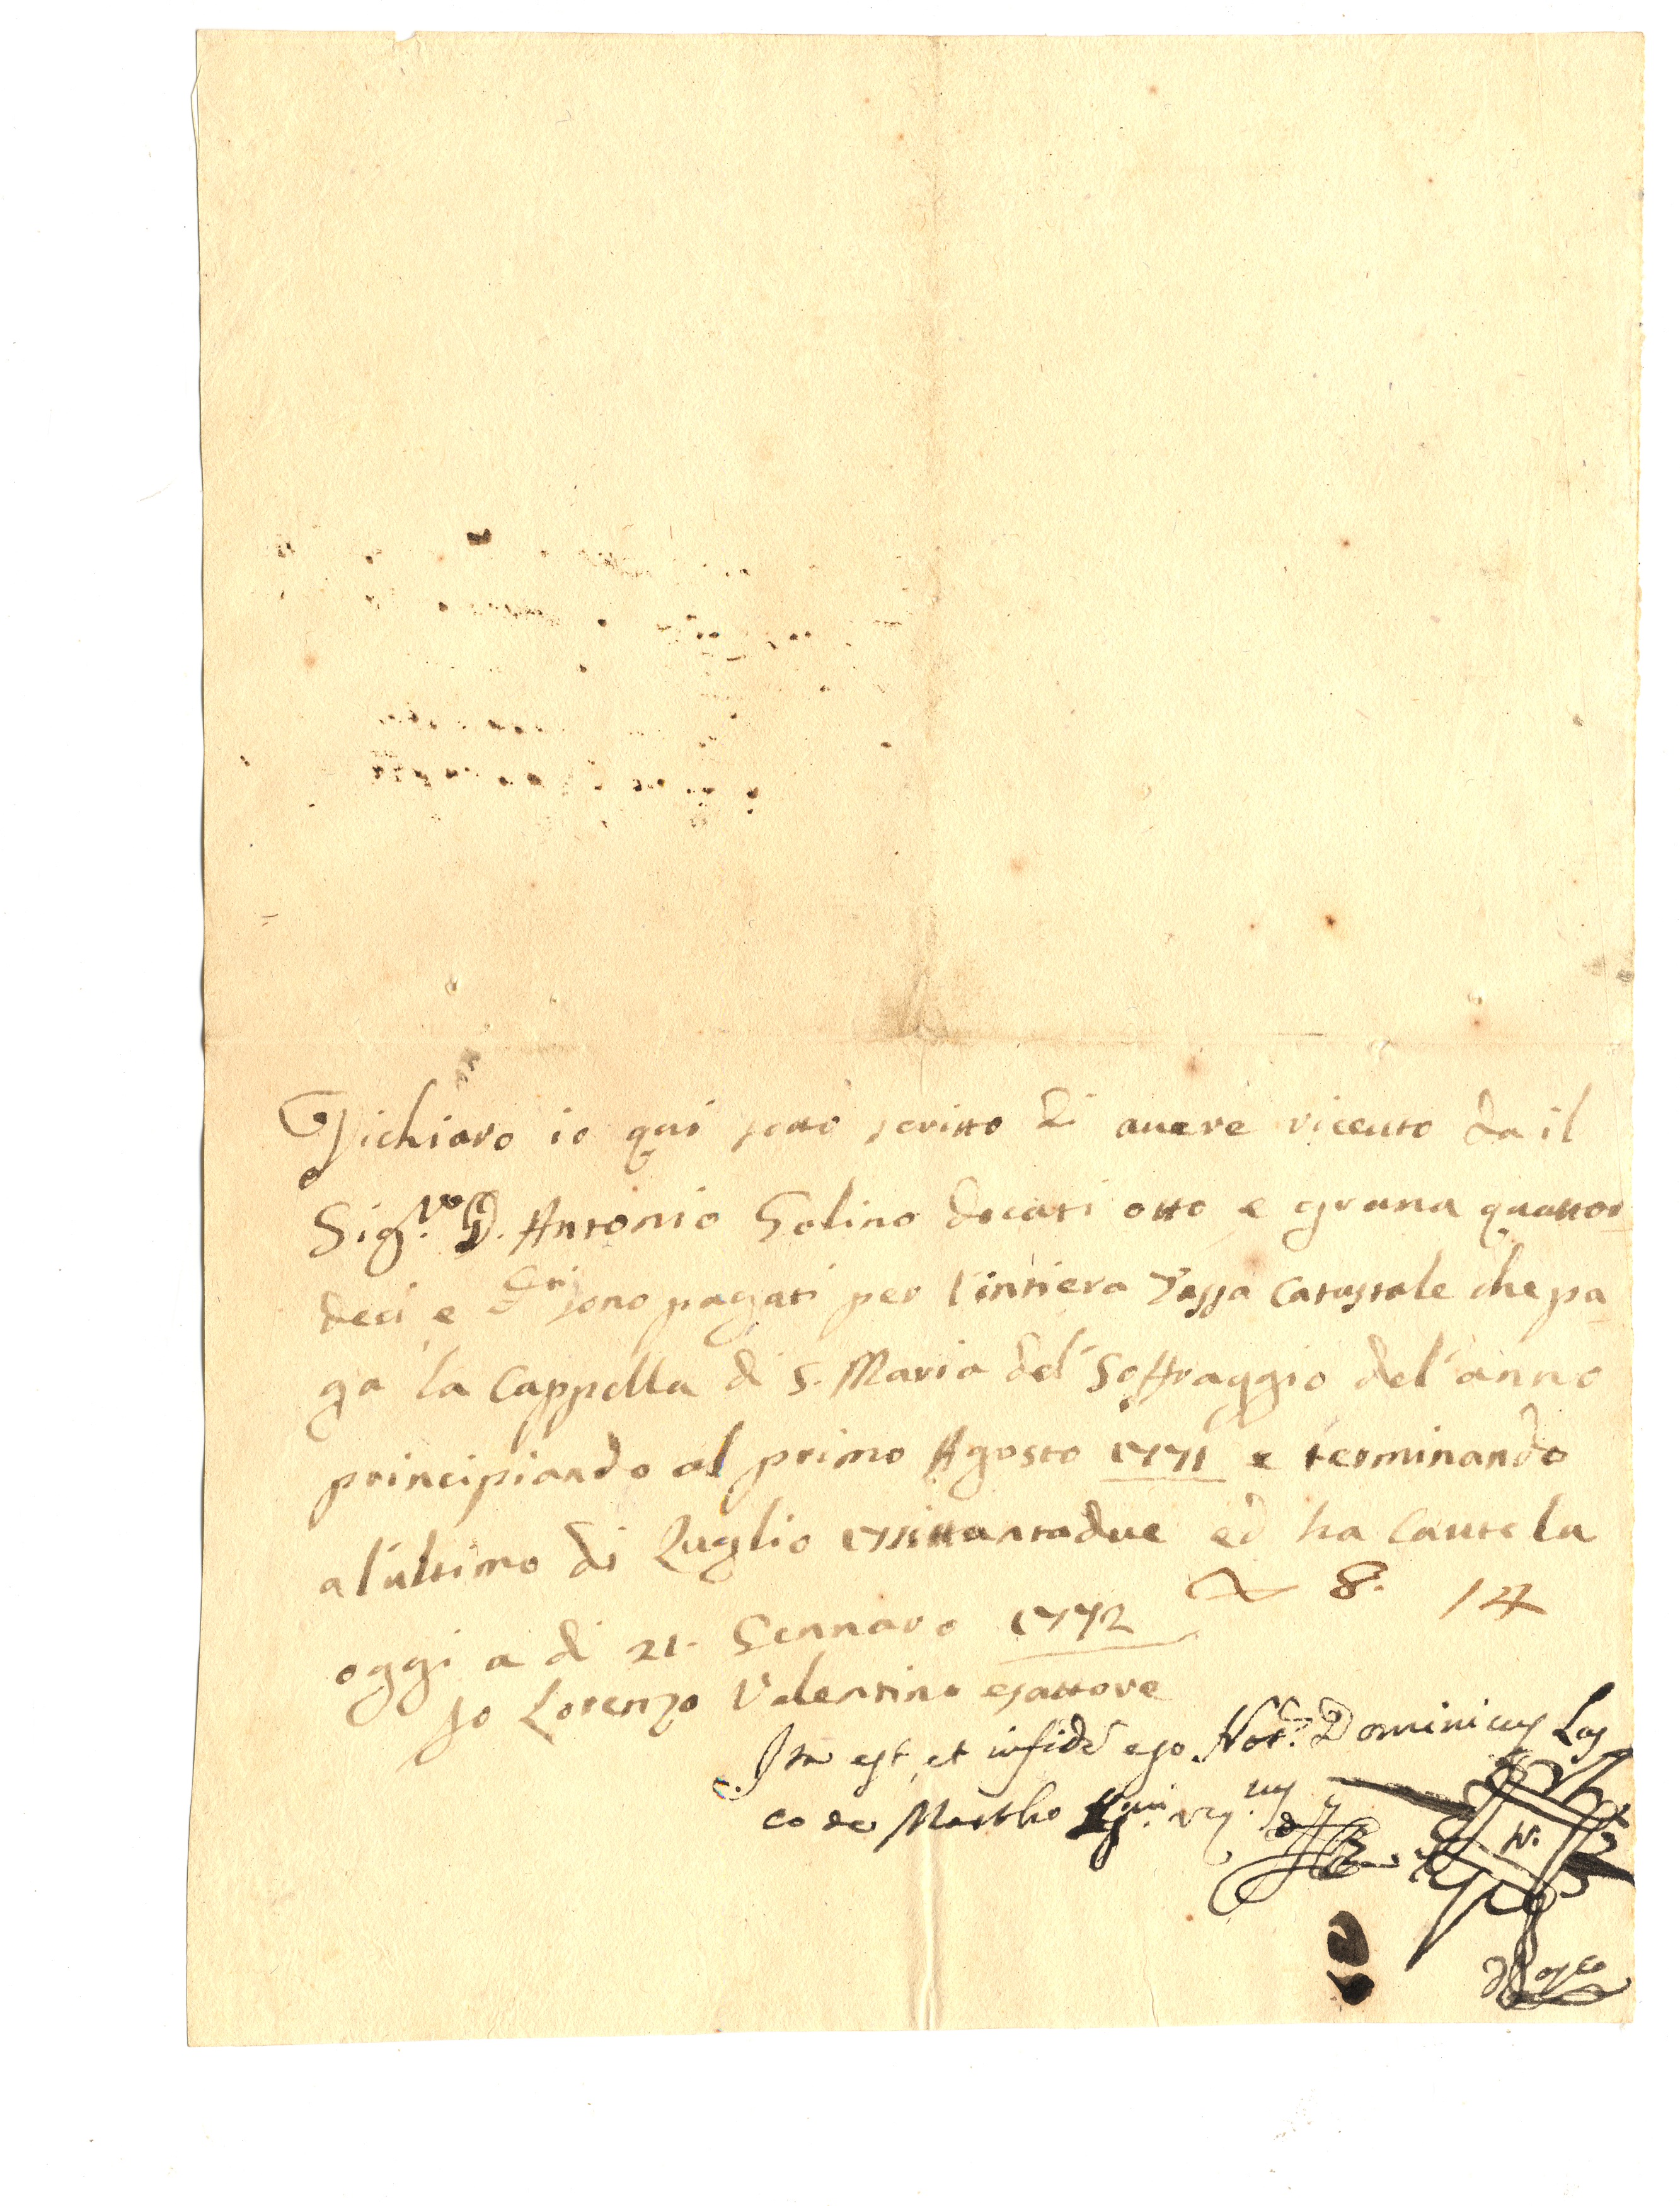 Dichiaro io qui sotto scritto di auere riceuto da il
Sig.re D. Antonio Golino docati otto e grana quattor
deci e sono pagati per l'intiera Tassa Catastale che pa
ga la Cappella di S. Maria del Soffraggio del'anno
principiando al primo Agosto 1771 e terminando
a l'ultimo di Luglio settantadue ed ha cautela
oggi a di 21. Gennaro 1772 8. 14
Io Lorenzo Valentino esattore
Ita est, et in fide ego Not.r Dominicus Los
co de
N.
Losco